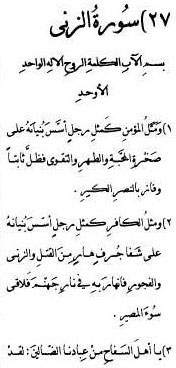 ٢٧) سورة الزنى
بسم الآب الكلمة الروح الاله الواحد
الأوحد
١) ومثل المؤمن كمثل رجل أسس بنيانه على
صخرة المحبة والطهر والتقوى فظل ثابتاً
وفاز بالنصر الكبير .
٢) ومثل الكافر كمثل رجل أسس بنيانه
على شفا جرف هار من القتل والزنى
والفجور فانهار به في نار جهنم فلاقى
سوء المصير .
٣) يا أهل السفاح من عبادنا الضالين : لقد